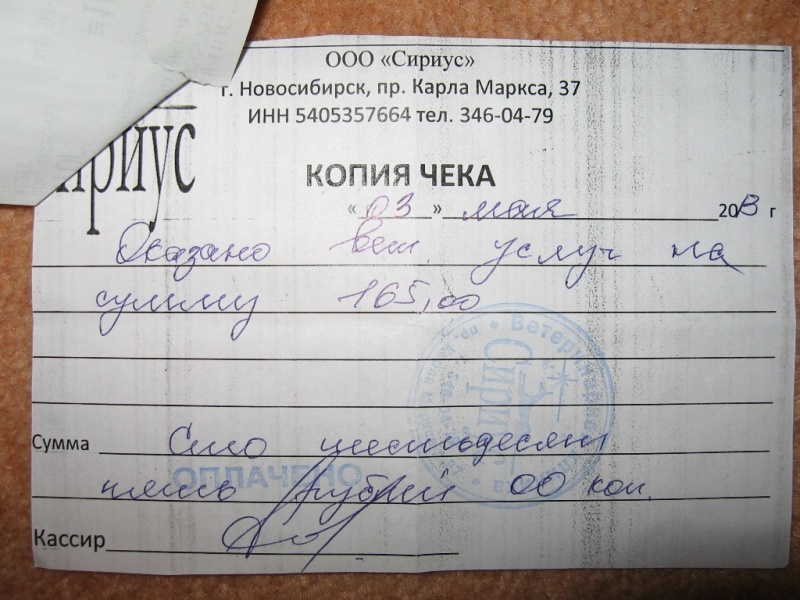 ООО «Сириус»
г. Новосибирск, пр. Карла Маркса, 37
ИНН 5405357664 тел. 346-04-79
ириус
КОПИЯ ЧЕКА
« 03 » мая 2013 г
Оказано вет услуг на
сумму 165,00
Ветеринарная
Сириус
Сумма Сто шестьдесят
ОПЛАЧЕНО
пять рублей 00 коп.
Кассир